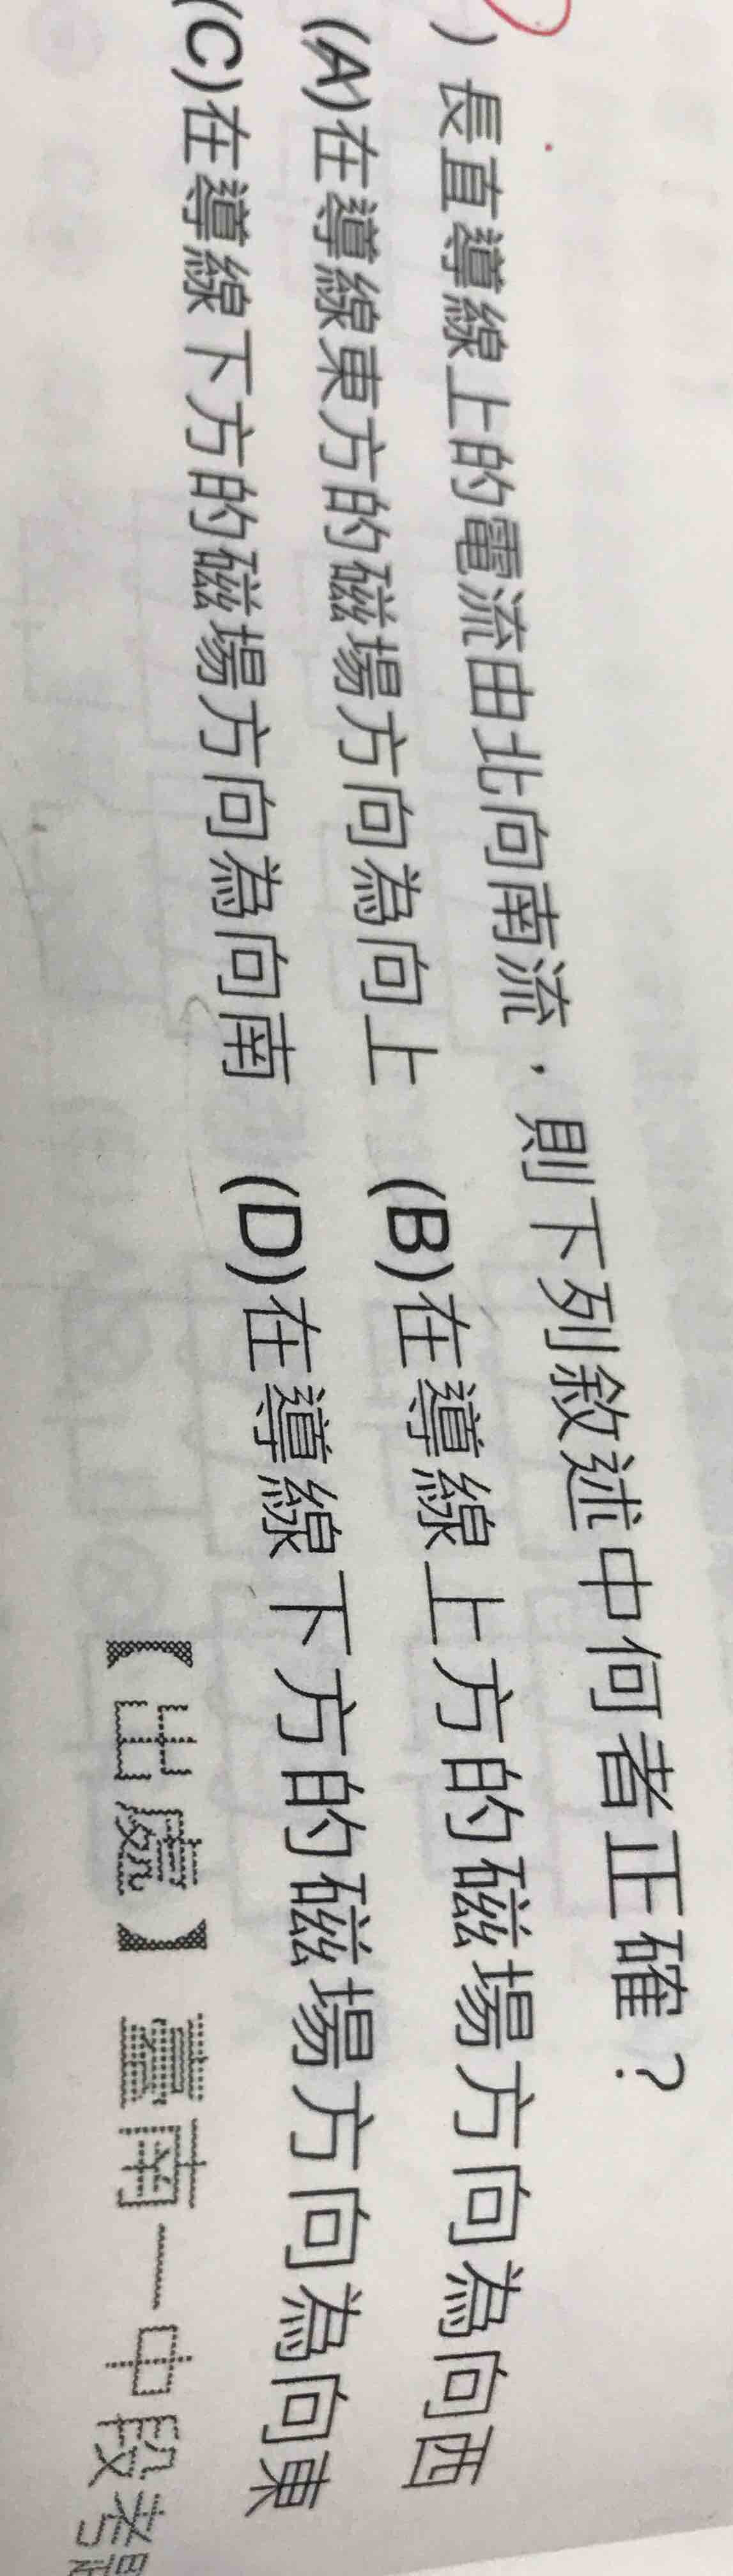 )長直導線上的電流由北向南流,則下列敘述中何者正確?
(A)在導線東方的磁場方向為向上 (B)在導線上方的磁場方向為向西
(C)在導線下方的磁場方向為向南 (D)在導線下方的磁場方向為向東
【出處】臺南一中段考題